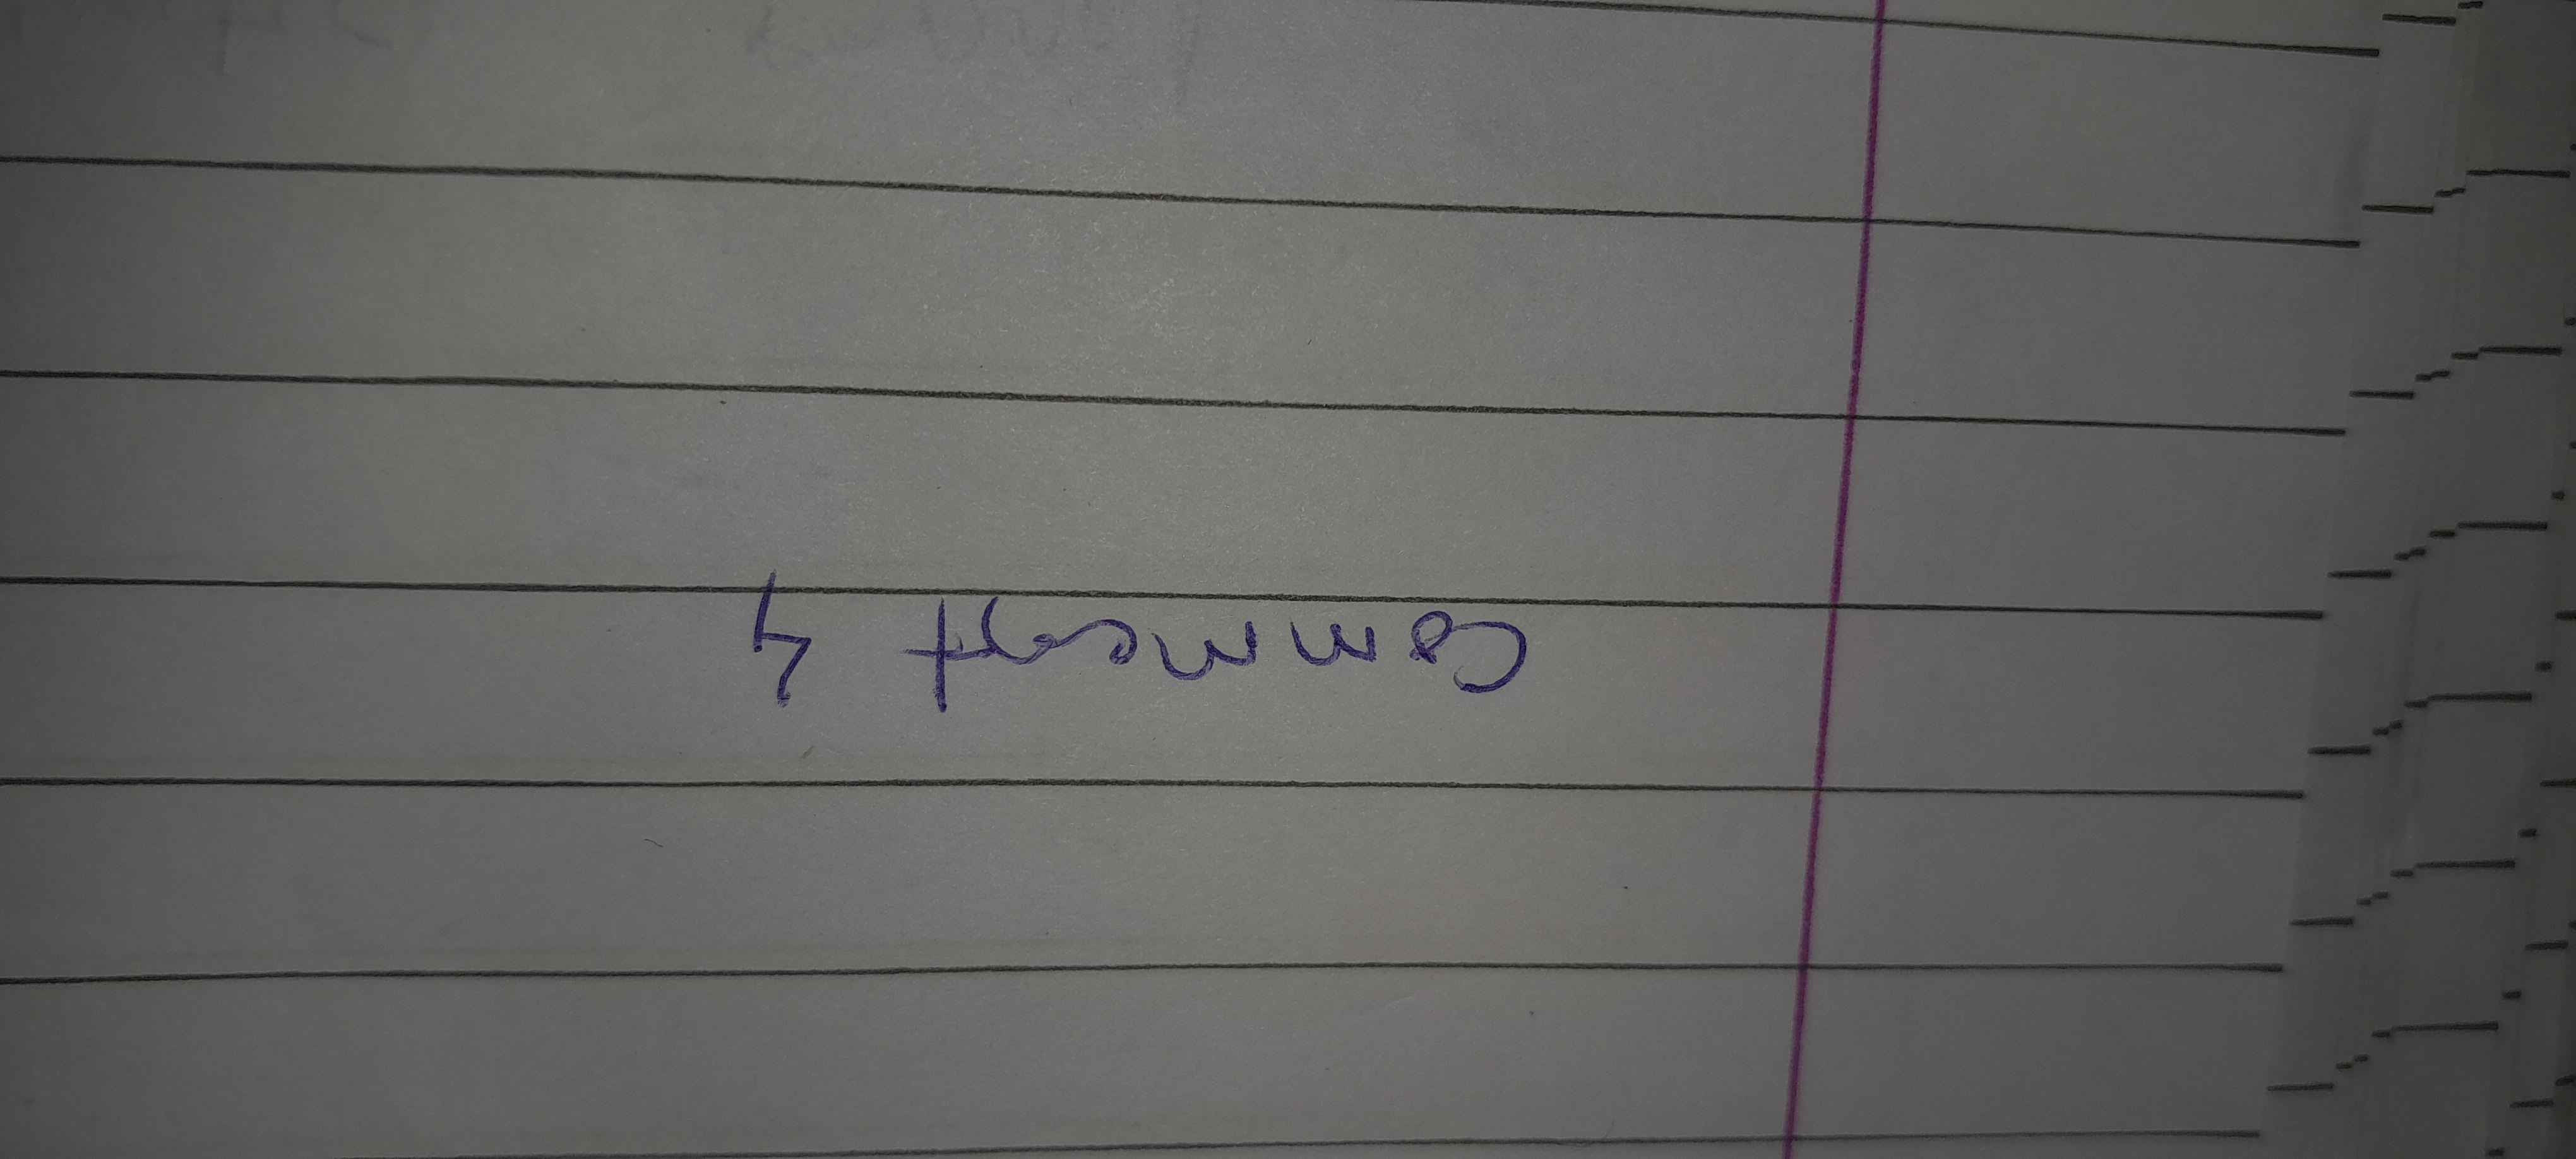 Comment 4